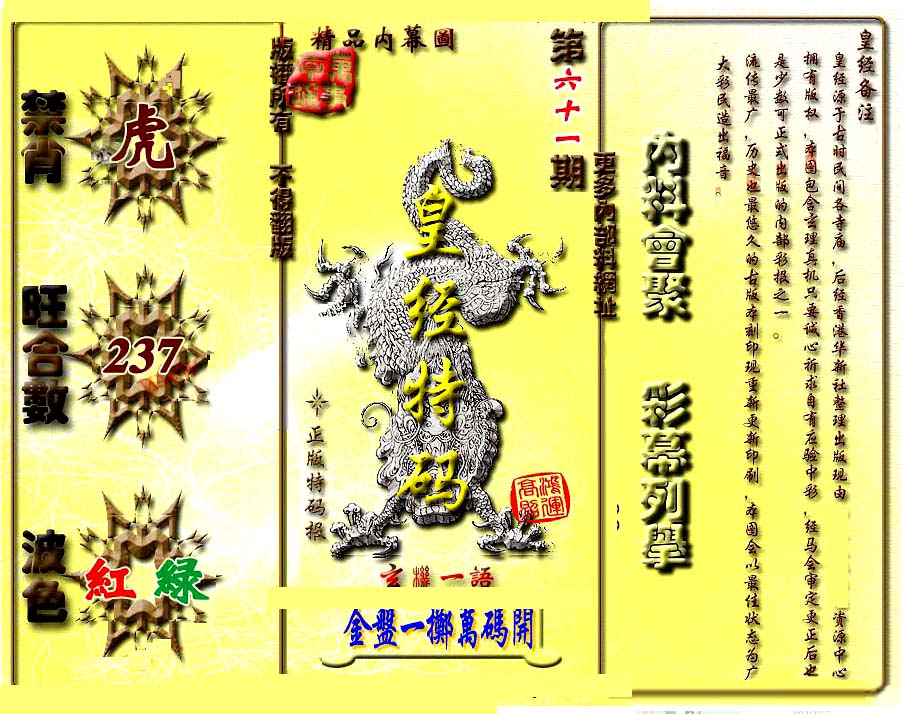 精品内幕圖
第六十一期
版權所有 不得翻版
更多内部料網址
禁肖
虎
旺合數
237
波色
紅 綠
皇经特码
正版特码报
鴻運高照
玄機一語
金盤一擲萬碼開
内料會聚
彩幕列舉
皇经备注
皇经源于古时民间各寺庙，后经香港华新社整理出版现由 资源中心
拥有版权，本图包含玄理真机只要诚心祈求自有应验中彩，经马会审定更正后也
是少数可正式出版的内部彩报之一。
流传最广，历史也最悠久的古版本刻印现重新更新印刷，本图会以最佳状态为广
大彩民造出福音